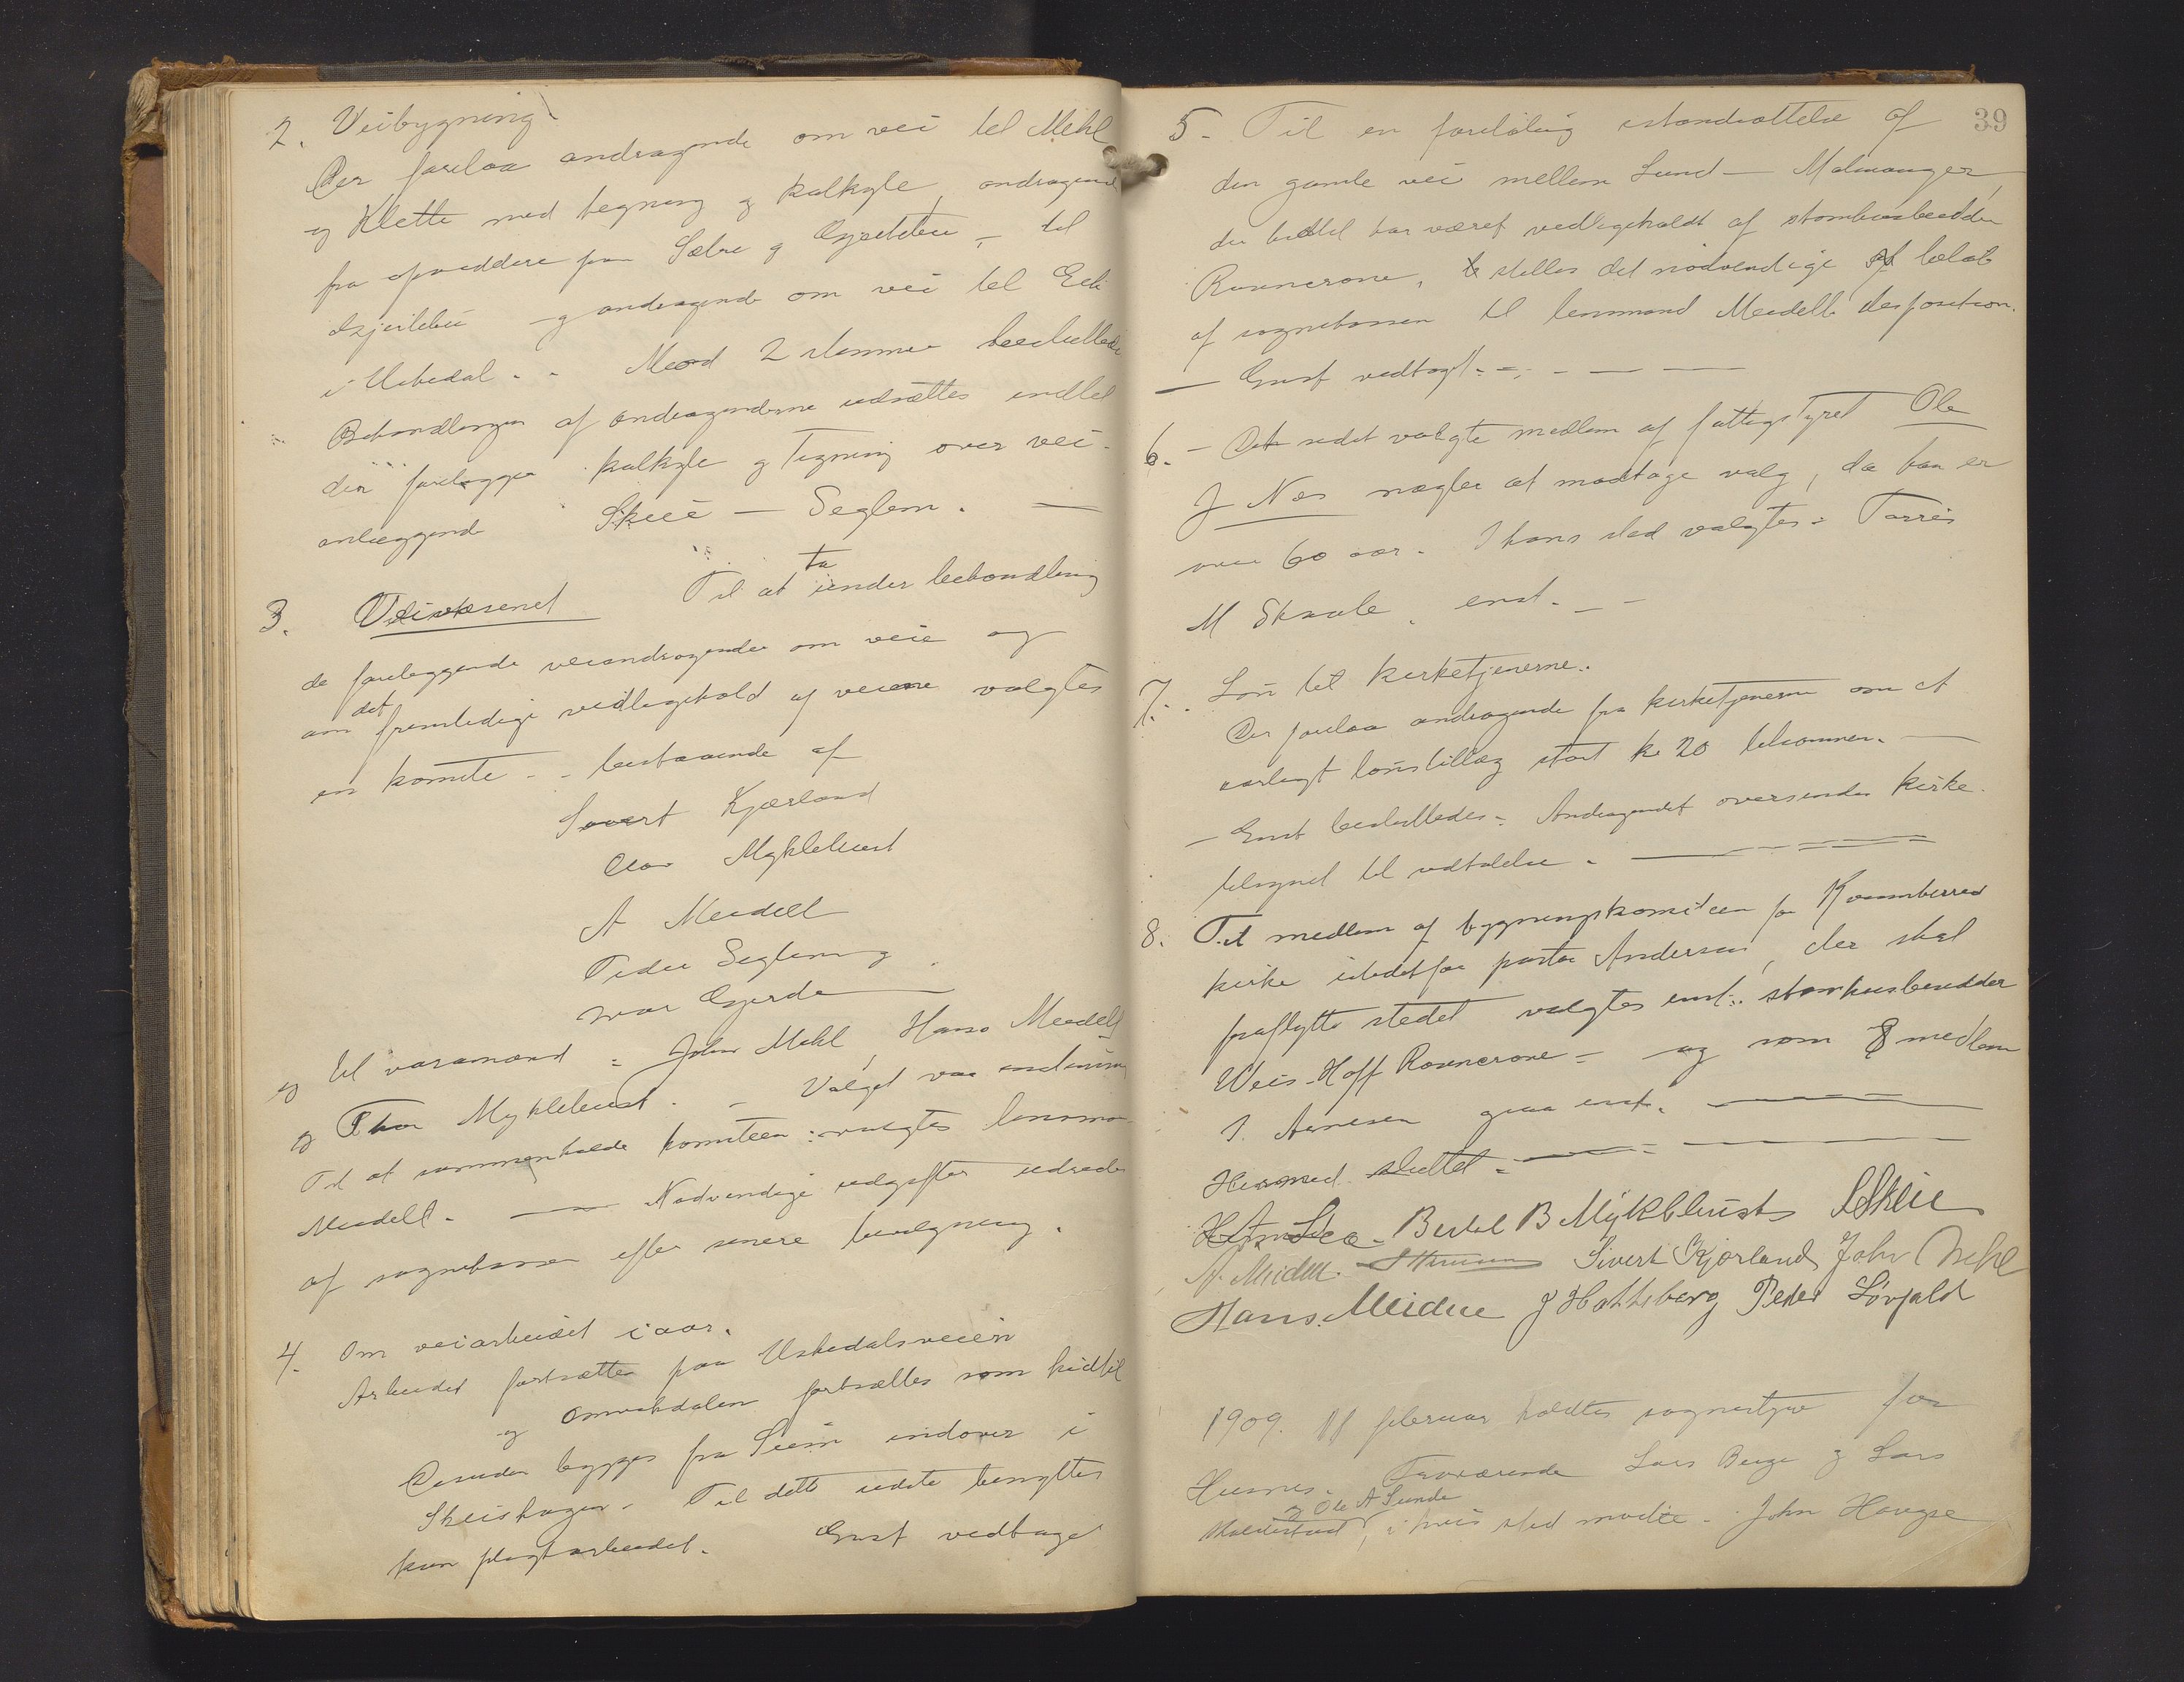 2. Veibygning
Der forelaa andragende om vei til Mehl
og Klette med tegning og kalkyle, andragende
fra opsiddere paa Sætre og
og andragende om vei til Eik
i Uskedal. - Mod 2 stemmer besluttedes
Behandlingen af andragenderne udsættes indtil
der foreligger kalkyle og Tegning over vei-
anlæggende Skeie - Seglem. -
3. Veivæsenet Til at ta under behandling
de foreliggende veiandragender om veie og
om det fremtidige vedligehold af veiene valgtes
en komite - bestaaende af
Sivert Kjærland
Myklebust
A Meidell
Peder Seglem og
Ivar Gjerde
og til varamænd = John Mehl, Hans Meidell
og Thor Myklebust. - Valget var enstemmig
Til at sammenkalde komiteen valgtes lensmand
Meidell. - Nødvendige udgifter udredes
af sognekassen efter senere bevilgning.
4. Om veiarbeidet i aar.
Arbeidet fortsætter paa Uskedalsveien
og Omvikdalen fortsættes som hidtil
Desuden bygges fra Seim indover i
Skeishagen. Til dette sidste benyttes
kun pligtarbeidet. Enst vedtaget
39
5. - Til en foreløbig istandsættelse af
den gamle vei mellem Lund - Malmanger,
der hidtil har været vedligeholdt af stamhusbesidder
Rosencrone, stilles det nødvendige beløb
af sognekassen til lensmand Meidells disposition.
- Enst vedtaget. - - - -
6. - Det sidst valgte medlem af fattigstyret Ole
J Nes nægter at modtage valg, da han er
over 60 aar. I hans sted valgtes = Torris
M Skaale, enst. - -
7. Løn til kirketjenerne.
Der forelaa andragende fra kirketjenerne om et
aarligt lønstillæg stort kr 20 tilsammen. -
- Enst besluttedes = Andragendet oversendes kirke-
tilsynet til udtalelse. -
8. Til medlem af bygningskomiteen for Kvinnherred
kirke istedetfor pastor Andersen, der skal
fraflytte stedet valgtes enst: stamhusbesidder
Weis-Hoff Rosencrone = og som 8 medlem
S. Arnesen ogsaa enst. -
Hermed sluttet =
Bertel B Myklebust S Skeie
A. Meidell. Sivert Kjærland John Mehl
Hans. Meidell J Hatteberg Peder Løvfald
1909. 11 februar holdtes sognestyre for
Husnes. Fraværende Lars Berge og Lars
og Ole A Sunde
i hvis sted mødte - John Haugse